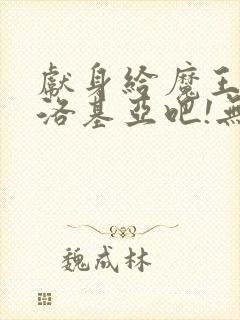 獻身給魔王
洛基亞吧!無
魏成林